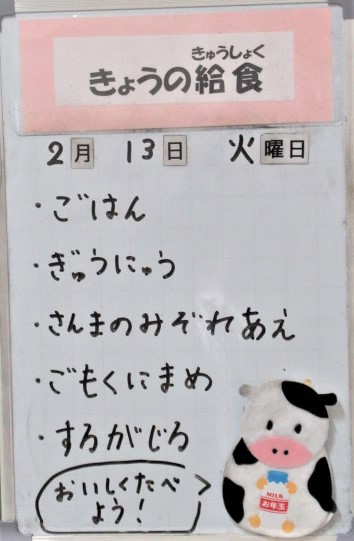 きゅうしょく
きょうの給食
2月 13日 火曜日
・ごはん
・ぎゅうにゅう
・さんまのみぞれあえ
・ごもくにまめ
・するがじる
おいしくたべ
よう!
MILK
お年玉